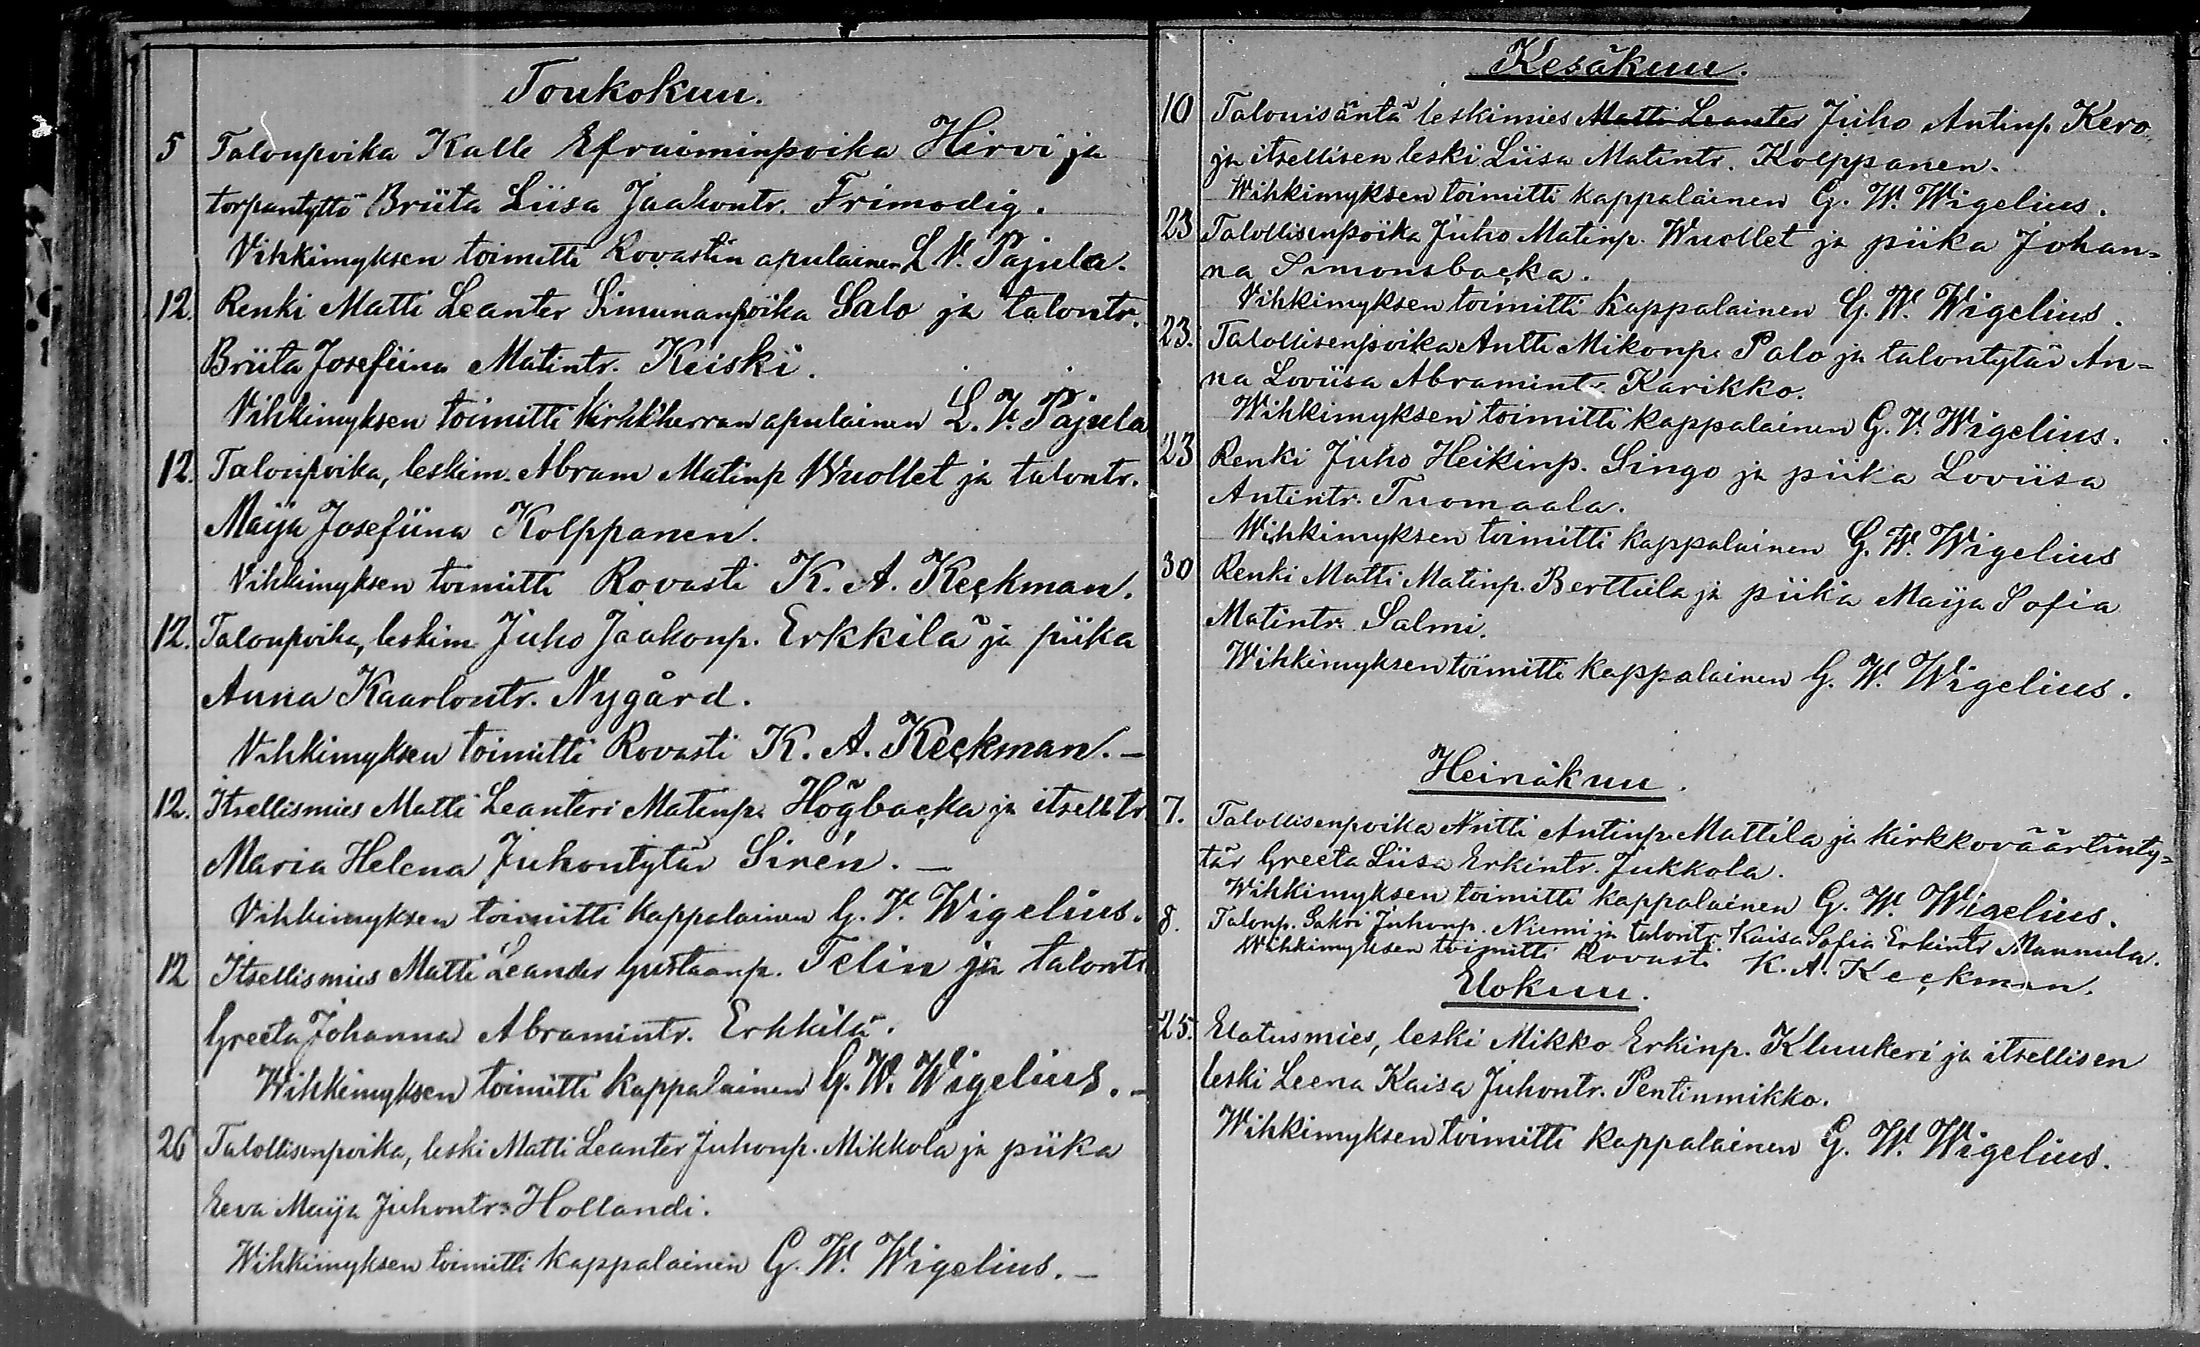 Toukokuu.
5 Talonpoika Kalle Efraiminpoika Hirvi ja
torpantyttö Briita Liisa Jaakontr. Frimodig.
Vihkimyksen toimitti Rovastin apulainen L. V. Pajula.
12. Renki Matti Leanter Simunanpoika Salo ja talontr.
Briita Josefiina Matintr. Kiiski.
Vihkimyksen toimitti kirkkherran apulainen L. V. Pajula
12. Talonpoika, leskim. Abram Matinp Wuollet ja talontr.
Maija Josefiina Kolppanen.
Vihkimyksen toimitti Rovasti K. A. Keckman.
12. Talonpoika, leskim Juho Jaakonp. Erkkilä ja piika
Anna Kaarlontr. Nygård.
Vihkimyksen toimitti Rovasti K. A. Keckman. –
12. Itsellismies Matti Leanteri Matinp. Högbacka ja itselltr
Maria Helena Juhontytär Sirén. –
Vihkimyksen toimitti kappalainen G. V. Wigelius.
12 Itsellismies Matti Leander Gustaanp. Telin ja talontr
Greeta Johanna Abramintr. Erkkilä.
Wihkimyksen toimitti kappalainen G. W. Wigelius. –
26 Talollisenpoika, leski Matti Leanter Juhonp. Mikkola ja piika
Eeva Maija Juhontr. Hollandi.
Wihkimyksen toimitti kappalainen G. W. Wigelius. –
Kesäkuu.
10 Talonisäntä leskimies Matti Leanter Juho Antinp. Kero
ja itsellisen leski Liisa Matintr. Kolppanen.
Wihkimyksen toimitti kappalainen G. W. Wigelius.
23 Talollisenpoika Juho Matinp. Wuollet ja piika Johan=
na Simonsbacka.
Vihkimyksen toimitti kappalainen G. W. Wigelius.
23. Talollisenpoika Antti Mikonp. Palo ja talontytär An=
na Loviisa Abramintr. Karikko.
Wihkimyksen toimitti kappalainen G. V. Wigelius.
23 Renki Juho Heikinp. Singo ja piika Loviisa
Antintr. Tuomaala.
Wihkimyksen toimitti kappalainen G. W. Wigelius
30 Renki Matti Matinp. Berttula ja piika Maija Sofia
Matintr. Salmi.
Wihkimyksen toimitti kappalainen G. W. Wigelius.
Heinäkuu.
7. Talollisenpoika Antti Antinp. Mattila ja kirkkoväärtinty=
tär Greeta Liisa Erkintr. Jukkola.
Wihkimyksen toimitti kappalainen G. W. Wigelius.
8. Talonp. Sakri Juhonp. Niemi ja talontr. Kaisa Sofia Erkintr Mannula.
Wihkimyksen toimitti Rovasti K. A. Keckman.
Elokuu.
25. Elatusmies, leski Mikko Erkinp. Kluukeri ja itsellisen
leski Leena Kaisa Juhontr. Pentinmikko.
Wihkimyksen toimitti kappalainen G. W. Wigelius.